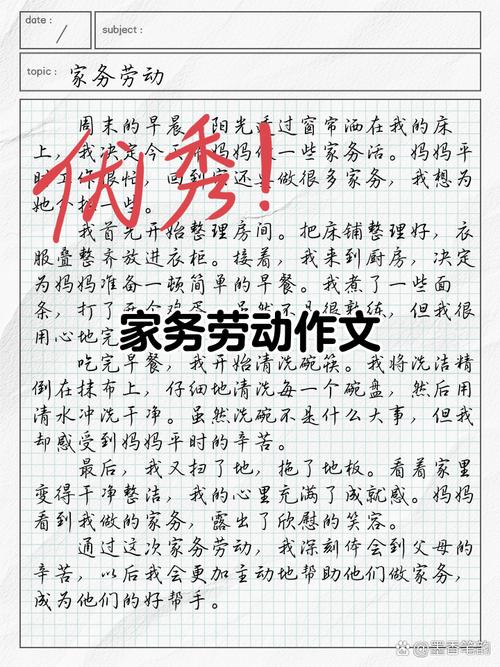 date :
/
subject :
topic :
家务劳动
周末的早晨 阳光透过窗帘洒在我的床
上,我决定今天 妈妈做一些家务活。妈妈平
时工作很忙,回到家还要做很多家务,我想为
她分担一些。
优秀!
我首先开始整理房间。把床铺整理好,衣
服叠整齐放进衣柜。接着,我来到厨房,决定
为妈妈准备一顿简单的早餐。我煮了一些面
条,打了 个鸡蛋 虽然不是很熟练,但我很
用心地完
家务劳动作文
吃完早餐,我开始清洗碗筷。我将洗洁精
倒在抹布上,仔细地清洗每一个碗盘,然后用
清水冲洗干净。虽然洗碗不是什么大事,但我
却感受到妈妈平时的辛苦。
最后,我又扫了地,拖了地板。看着家里
变得干净整洁,我的心里充满了成就感。妈妈
看到我做的家务,露出了欣慰的笑容。
通过这次家务劳动,我深刻体会到父母的
辛苦,以后我会更加主动地帮助他们做家务,
成为他们的好帮手。
墨香笔韵